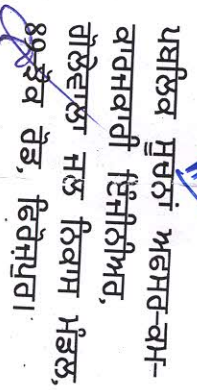 ਪਬਲਿਕ ਸੂਚਨਾਂ ਅਫਸਰ-ਕਮ-
ਕਾਰਜਕਾਰੀ ਇੰਜੀਨੀਅਰ,
ਗੋਲੇਵਾਲਾ ਜਲ ਨਿਕਾਸ ਮੰਡਲ,
89 ਕੈਂਟ ਰੋਡ, ਫਿਰੋਜ਼ਪੁਰ।